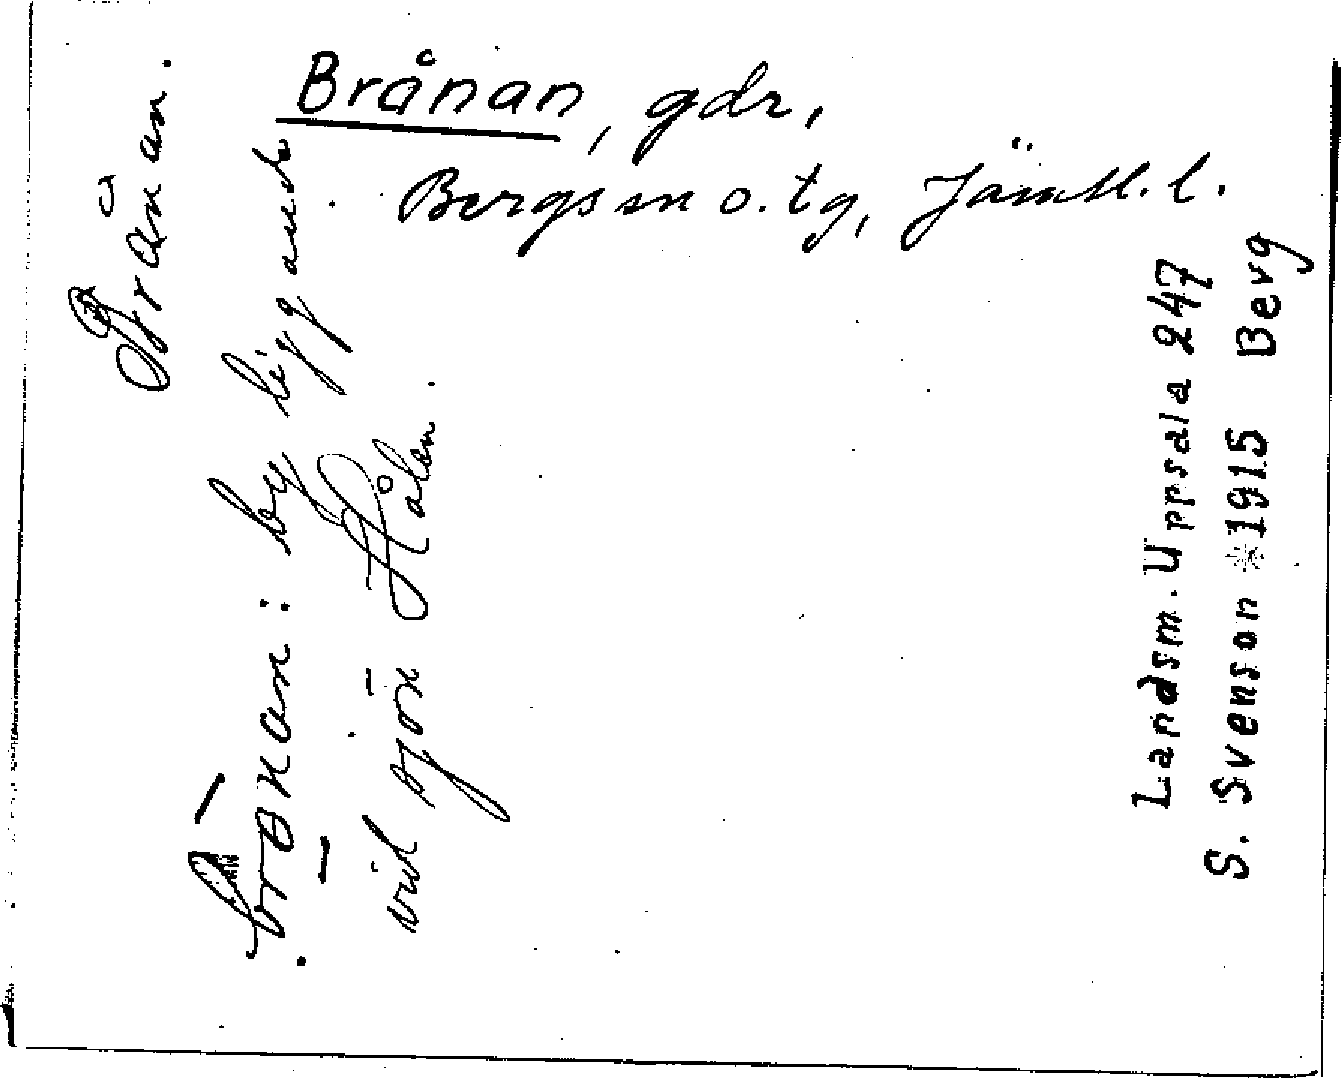 Brånan, gdr,
Bergs sn o. tg, Jämtl. l.
Brånan.
by liggande
vid sjön Hålen.
Landsm. Uppsala 247
S. Svenson *1915 Berg